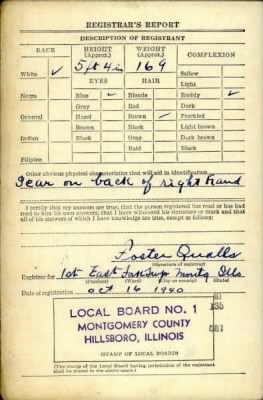 REGISTRAR'S REPORT
DESCRIPTION OF REGISTRANT
RACE HEIGHT (Approx.) WEIGHT (Approx.) COMPLEXION
White ✓ 5 ft 4 in 169 Sallow
EYES HAIR Light
Negro Blue ✓ Blonde Ruddy ✓
Gray Red Dark
Oriental Hazel Brown ✓ Freckled
Brown Black Light brown
Indian Black Gray Dark brown
Bald Black
Filipino
Other obvious physical characteristics that will aid in identification
Scar on back of right hand
I certify that my answers are true; that the person registered has read or has had
read to him his own answers; that I have witnessed his signature or mark and that
all of his answers of which I have knowledge are true, except as follows:
Foster Qualls
(Signature of registrar)
Registrar for 1st East Montg Ills.
(Precinct) (Ward) (City or county) (State)
Date of registration Oct 16 1940
LOCAL BOARD NO. 1
MONTGOMERY COUNTY
HILLSBORO, ILLINOIS
(STAMP OF LOCAL BOARD)
(The stamp of the Local Board having jurisdiction of the registrant
shall be placed in the above space.)